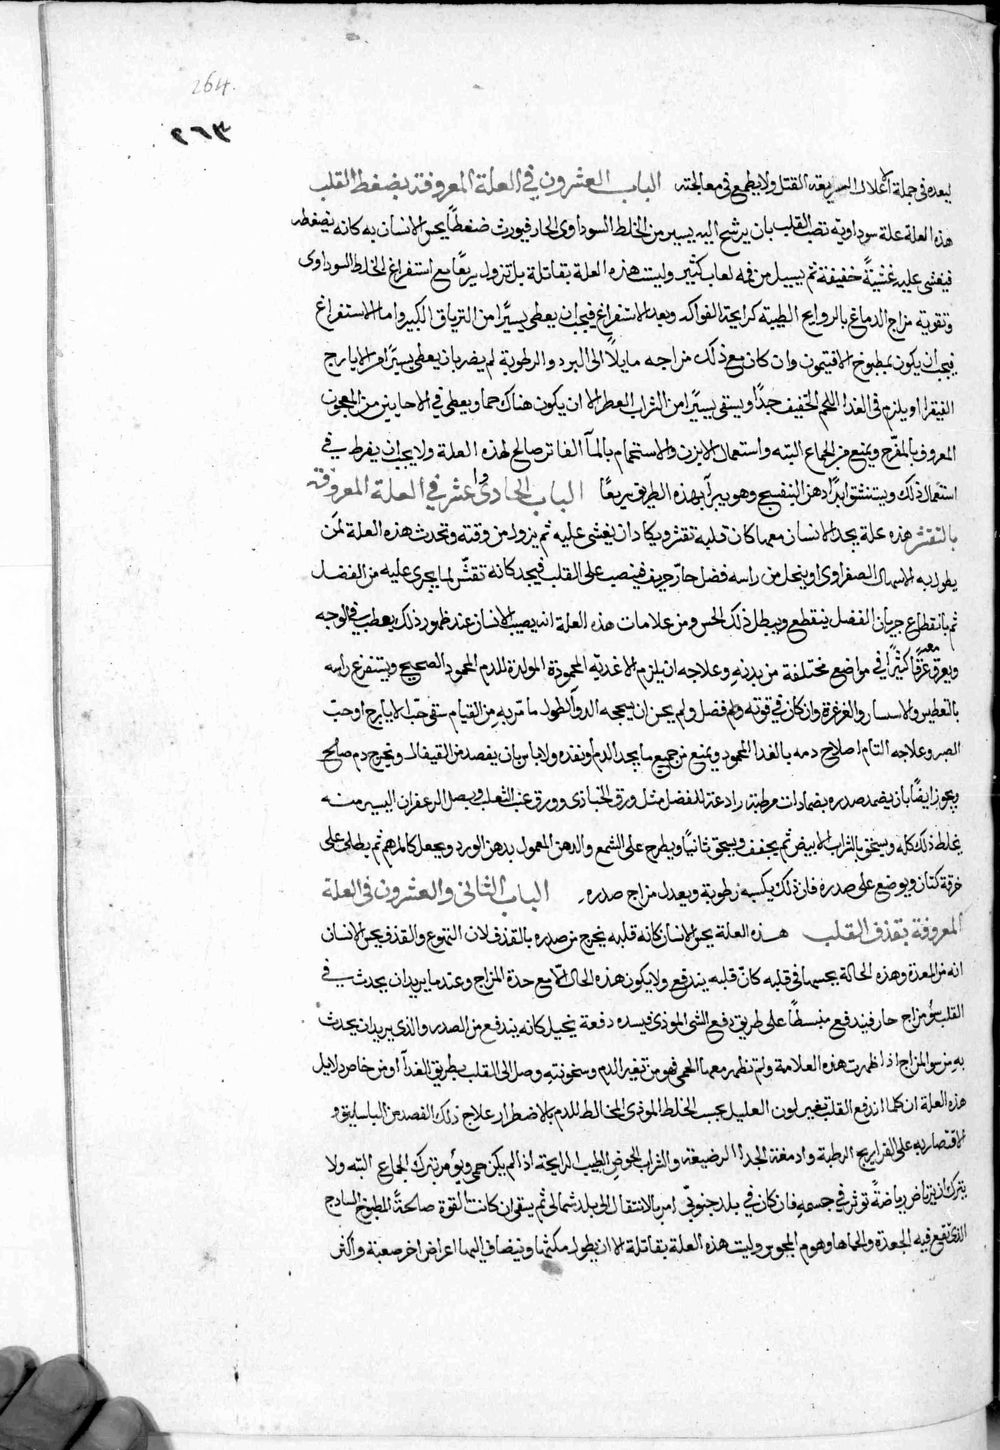 264.
٢٦٣
لبعده في جملة الأعلال السريعة القتل ولا يطمع في معالجته الباب العشرون في العلة المعروفة بضغط القلب
هذه العلة علة سوداوية تصب القلب بان يرشح اليه يسير من الخلط السوداوى الحار فيورث ضغطاً يحس الانسان به كانه يضغطه
فيغشى عليه غشيةً خفيفة ثم يسيل من فمه لعاب كثير وليست هذه العلة بقاتلة بل تزول سريعًا مع استفراغ الخلط السوداوى
وتقوية مزاج الدماغ بالروايح الطيبة كرايحة الفواكه وبعد الاستفراغ فيجب ان يعطى يسيرًا من الترياق الكبير واما الاستفراغ
فيجب أن يكون بمطبوخ الافتيمون وان كان مع ذلك مزاجه مايلاً الى البرد والرطوبة لم يضر بان يعطى يسيرًا من الايارج
الفيقرا ويلزم في الغذا اللحم الخفيف جدًا ويسقى يسيرًا من الشراب العطر الا ان يكون هناك حما ويعطى في الاحايين من المعجون
المعروف بالمفرح ويمنع من الجماع البته واستعمال الابزن والاستحمام بالمآ الفاتر صالح لهذه العلة ولا يجب ان يفرط في
استعمال ذلك ويستنشق ابدًا دهن البنفسج وهو يبرأ بهذه الطريق سريعًا الباب الحادى وا عشر في العلة المعروفة
بالتقشر هذه علة يجد الانسان معها كان قلبه تقشر ويكاد ان يغشى عليه ثم يزول من وقته وتحدث هذه العلة لمن
يطول به الاسهال الصفراوى او ينحل من راسه فضل حار حريف فينصب على القلب فيجد كانه تقشّر لما يجرى عليه من الفضل
ثم بانقطاع جريان الفضل ينقطع ويبطل ذلك الحس ومن علامات هذه العلة انه يصيب الانسان عند ظهور ذلك في الوجه
ويعرق معه عرقًا كثيرًا في مواضع مختلفة من بدنه وعلاجه ان يلزم الاغذيه المحمودة المولدة للدم المحمود الصحيح ويستفرغ راسه
بالتعطيس والغرغرة وان كان في قوته فضل ولم يحسن ان يهيجه الدوآ لطول ما مر به من القيام سقى حب الايارج او حب
الصبر وعلاجه التام اصلاح دمه بالغذا المحمود ويمنع من جميع ما يحد الدم وينفذه ولا باس بان يفصد من القيفال ويخرج دم صالح
ويجوز ايضًا بان يضمد صدره بضمادات مرطبة رادعة للفضل مثل ورق الخبازى وورق عنب الثعلب وبصل الزعفران اليسير منه
يخلط ذلك كله ويسحق بالشراب الابيض ثم يجفف ويسحق ثانيًا ويطرح على الشمع والدهن المعمول بدهن الورد ويجعل كالمرهم ثم يطلى على
خرقة كتان ويوضع على صدره فان ذلك يكسبه رطوبة ويعدل مزاج صدره. الباب الثانى والعشرون في العلة
المعروفة بقذف القلب هذه العلة يحس الانسان كانه قلبه يخرج من صدره بالقذف لان التهوع والقذف يحس الانسان
انه من المعدة وهذه الحالة يحسها في قلبه كان قلبه يندفع ولا يكون هذه الحال الا مع حدة المزاج وعند ما يريد ان يحدث في
القلب سؤ مزاج حار فيندفع منبسطًا على طريق دفع الشى الموذى فيسده دفعة يخيل كانه يندفع من الصدر والذى يريد ان يحدث
به من سو المزاج اذا ظهرت هذه العلامة ولم تظهر معها الحمى فهو من تغير الدم وسخونته وصل الى القلب بطريق الغدآ او من خاص دلايل
هذه العلة ان كلما اندفع القلب تغير لون العليل بحسب الخلط الموذى المخالط للدم بالاضطرار علاج ذلك الفصد من الباسليق و
الاقتصار به على الفراريج الرطبة وادمغة الجدأ الرضيعة والشراب الحوضى الطيب الرايحة اذا لم يكن حمى ويؤمر بترك الجماع البته ولا
يترك ان يرتاض رياضةً توثر في جسمه فان كان في بلد جنوبى امر بالانتقال الى بلد شمالى ثم يسقى ان كانت القوة صالحة المطبوخ الساذج
الذى تقع فيه الجعدة والحماما وهوم المجوس وليست هذه العلة بقاتلة الا ان يطول مكثها وينضاف اليها اعراض اخر صعبة واكثر